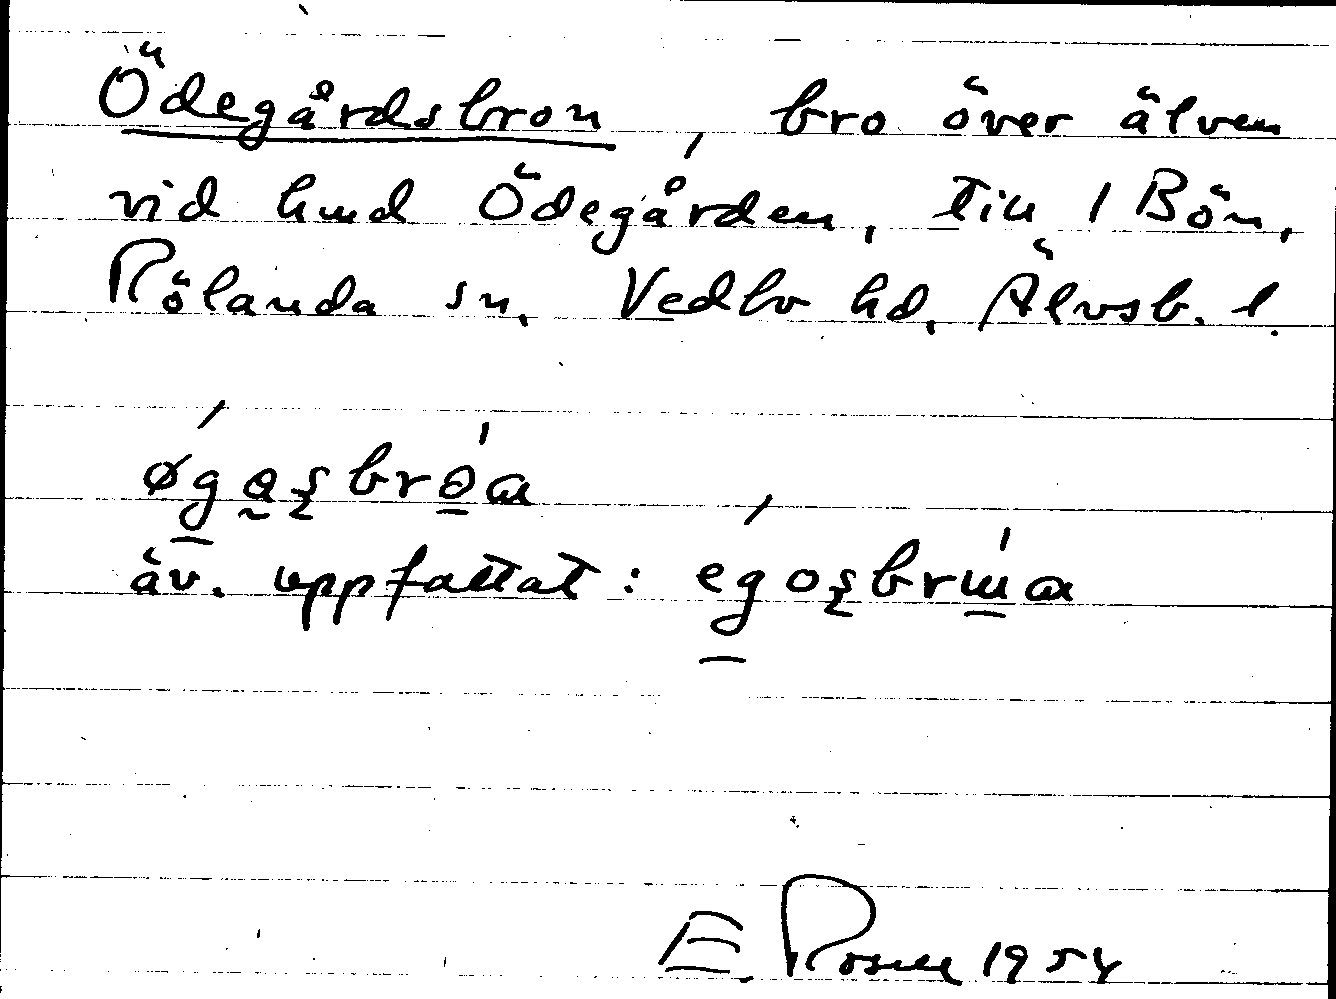 Ödegårdsbron, bro över älven
vid hmd Ödegården, till 1 Bön,
Rölanda sn, Vedbo hd, Älvsb. l.
äv. uppfattat:
E. Rosell 1954